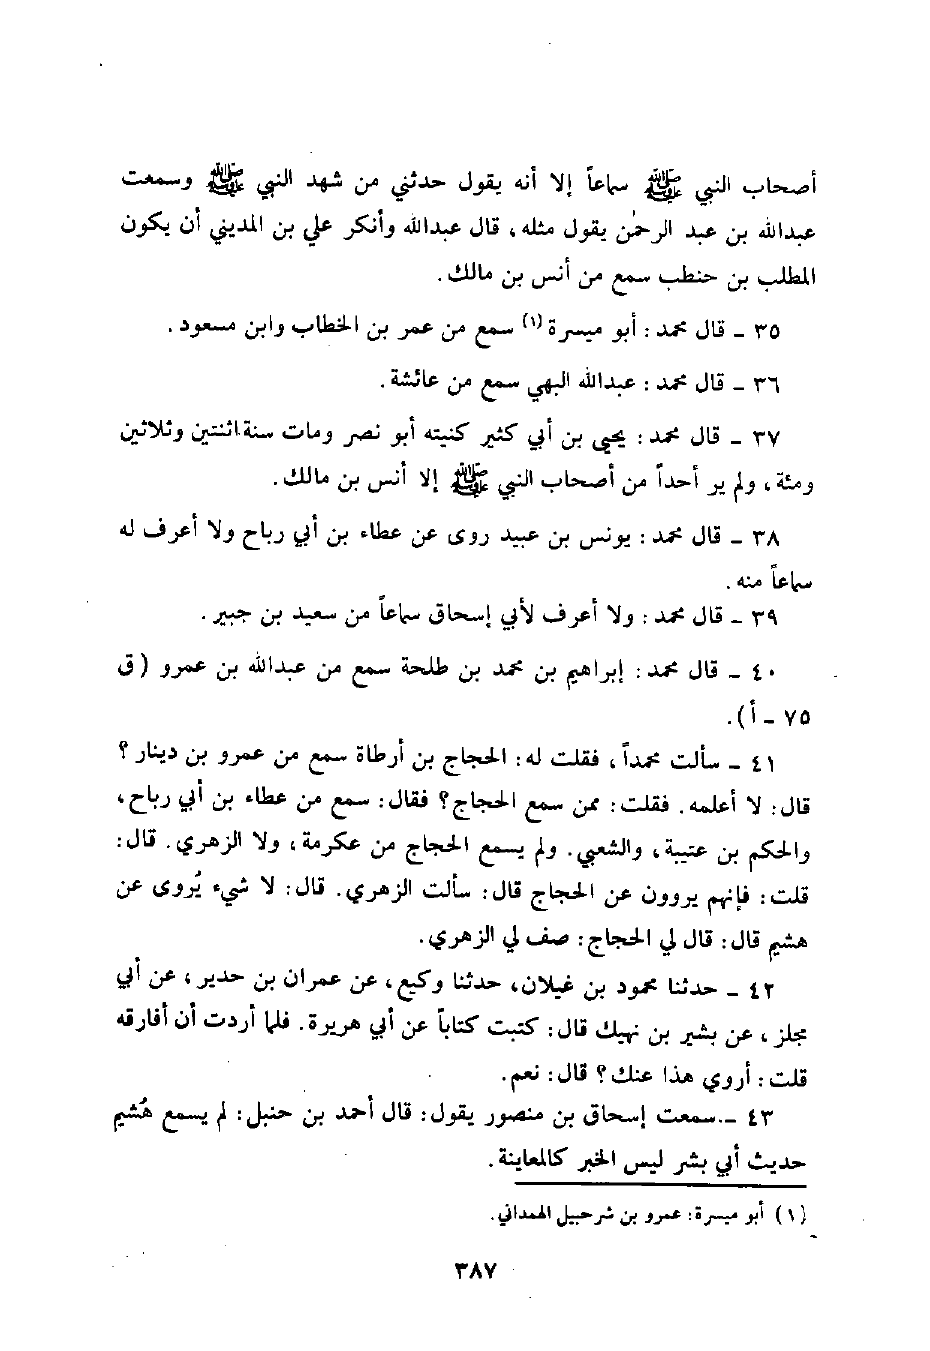 أصحاب النبي ﷺ سماعاً إلا أنه يقول حدثني من شهد النبي ﷺ وسمعت
عبدالله بن عبد الرحمٰن يقول مثله، قال عبدالله وأنكر علي بن المديني أن يكون
المطلب بن حنطب سمع من أنس بن مالك.
٣٥ ـ قال محمد: أبو ميسرة (١) سمع من عمر بن الخطاب وابن مسعود.
٣٦ ـ قال محمد: عبدالله البهي سمع من عائشة.
٣٧ ـ قال محمد: يحيى بن أبي كثير كنيته أبو نصر ومات سنة اثنتين وثلاثين
ومئة، ولم ير أحداً من أصحاب النبي ﷺ إلا أنس بن مالك.
٣٨ ـ قال محمد: يونس بن عبيد روى عن عطاء بن أبي رباح ولا أعرف له
سماعاً منه.
٣٩ ـ قال محمد: ولا أعرف لأبي إسحاق سماعاً من سعيد بن جبير.
٤٠ ـ قال محمد: إبراهيم بن محمد بن طلحة سمع من عبدالله بن عمرو (ق
٧٥ ـ أ).
٤١ ـ سألت محمداً، فقلت له: الحجاج بن أرطاة سمع من عمرو بن دينار؟
قال: لا أعلمه. فقلت: ممن سمع الحجاج؟ فقال: سمع من عطاء بن أبي رباح،
والحكم بن عتيبة، والشعبي. ولم يسمع الحجاج من عكرمة، ولا الزهري. قال:
قلت: فإنهم يروون عن الحجاج قال: سألت الزهري. قال: لا شيء يُروى عن
هشيم قال: قال لي الحجاج: صف لي الزهري.
٤٢ ـ حدثنا محمود بن غيلان، حدثنا وكيع، عن عمران بن حدير، عن أبي
مجلز، عن بشير بن نهيك قال: كتبت كتاباً عن أبي هريرة. فلما أردت أن أفارقه
قلت: أروي هذا عنك؟ قال: نعم.
٤٣ ـ سمعت إسحاق بن منصور يقول: قال أحمد بن حنبل: لم يسمع هُشيم
حديث أبي بشر ليس الخبر كالمعاينة.
(١) أبو ميسرة: عمرو بن شرحبيل الهمداني.
٣٨٧